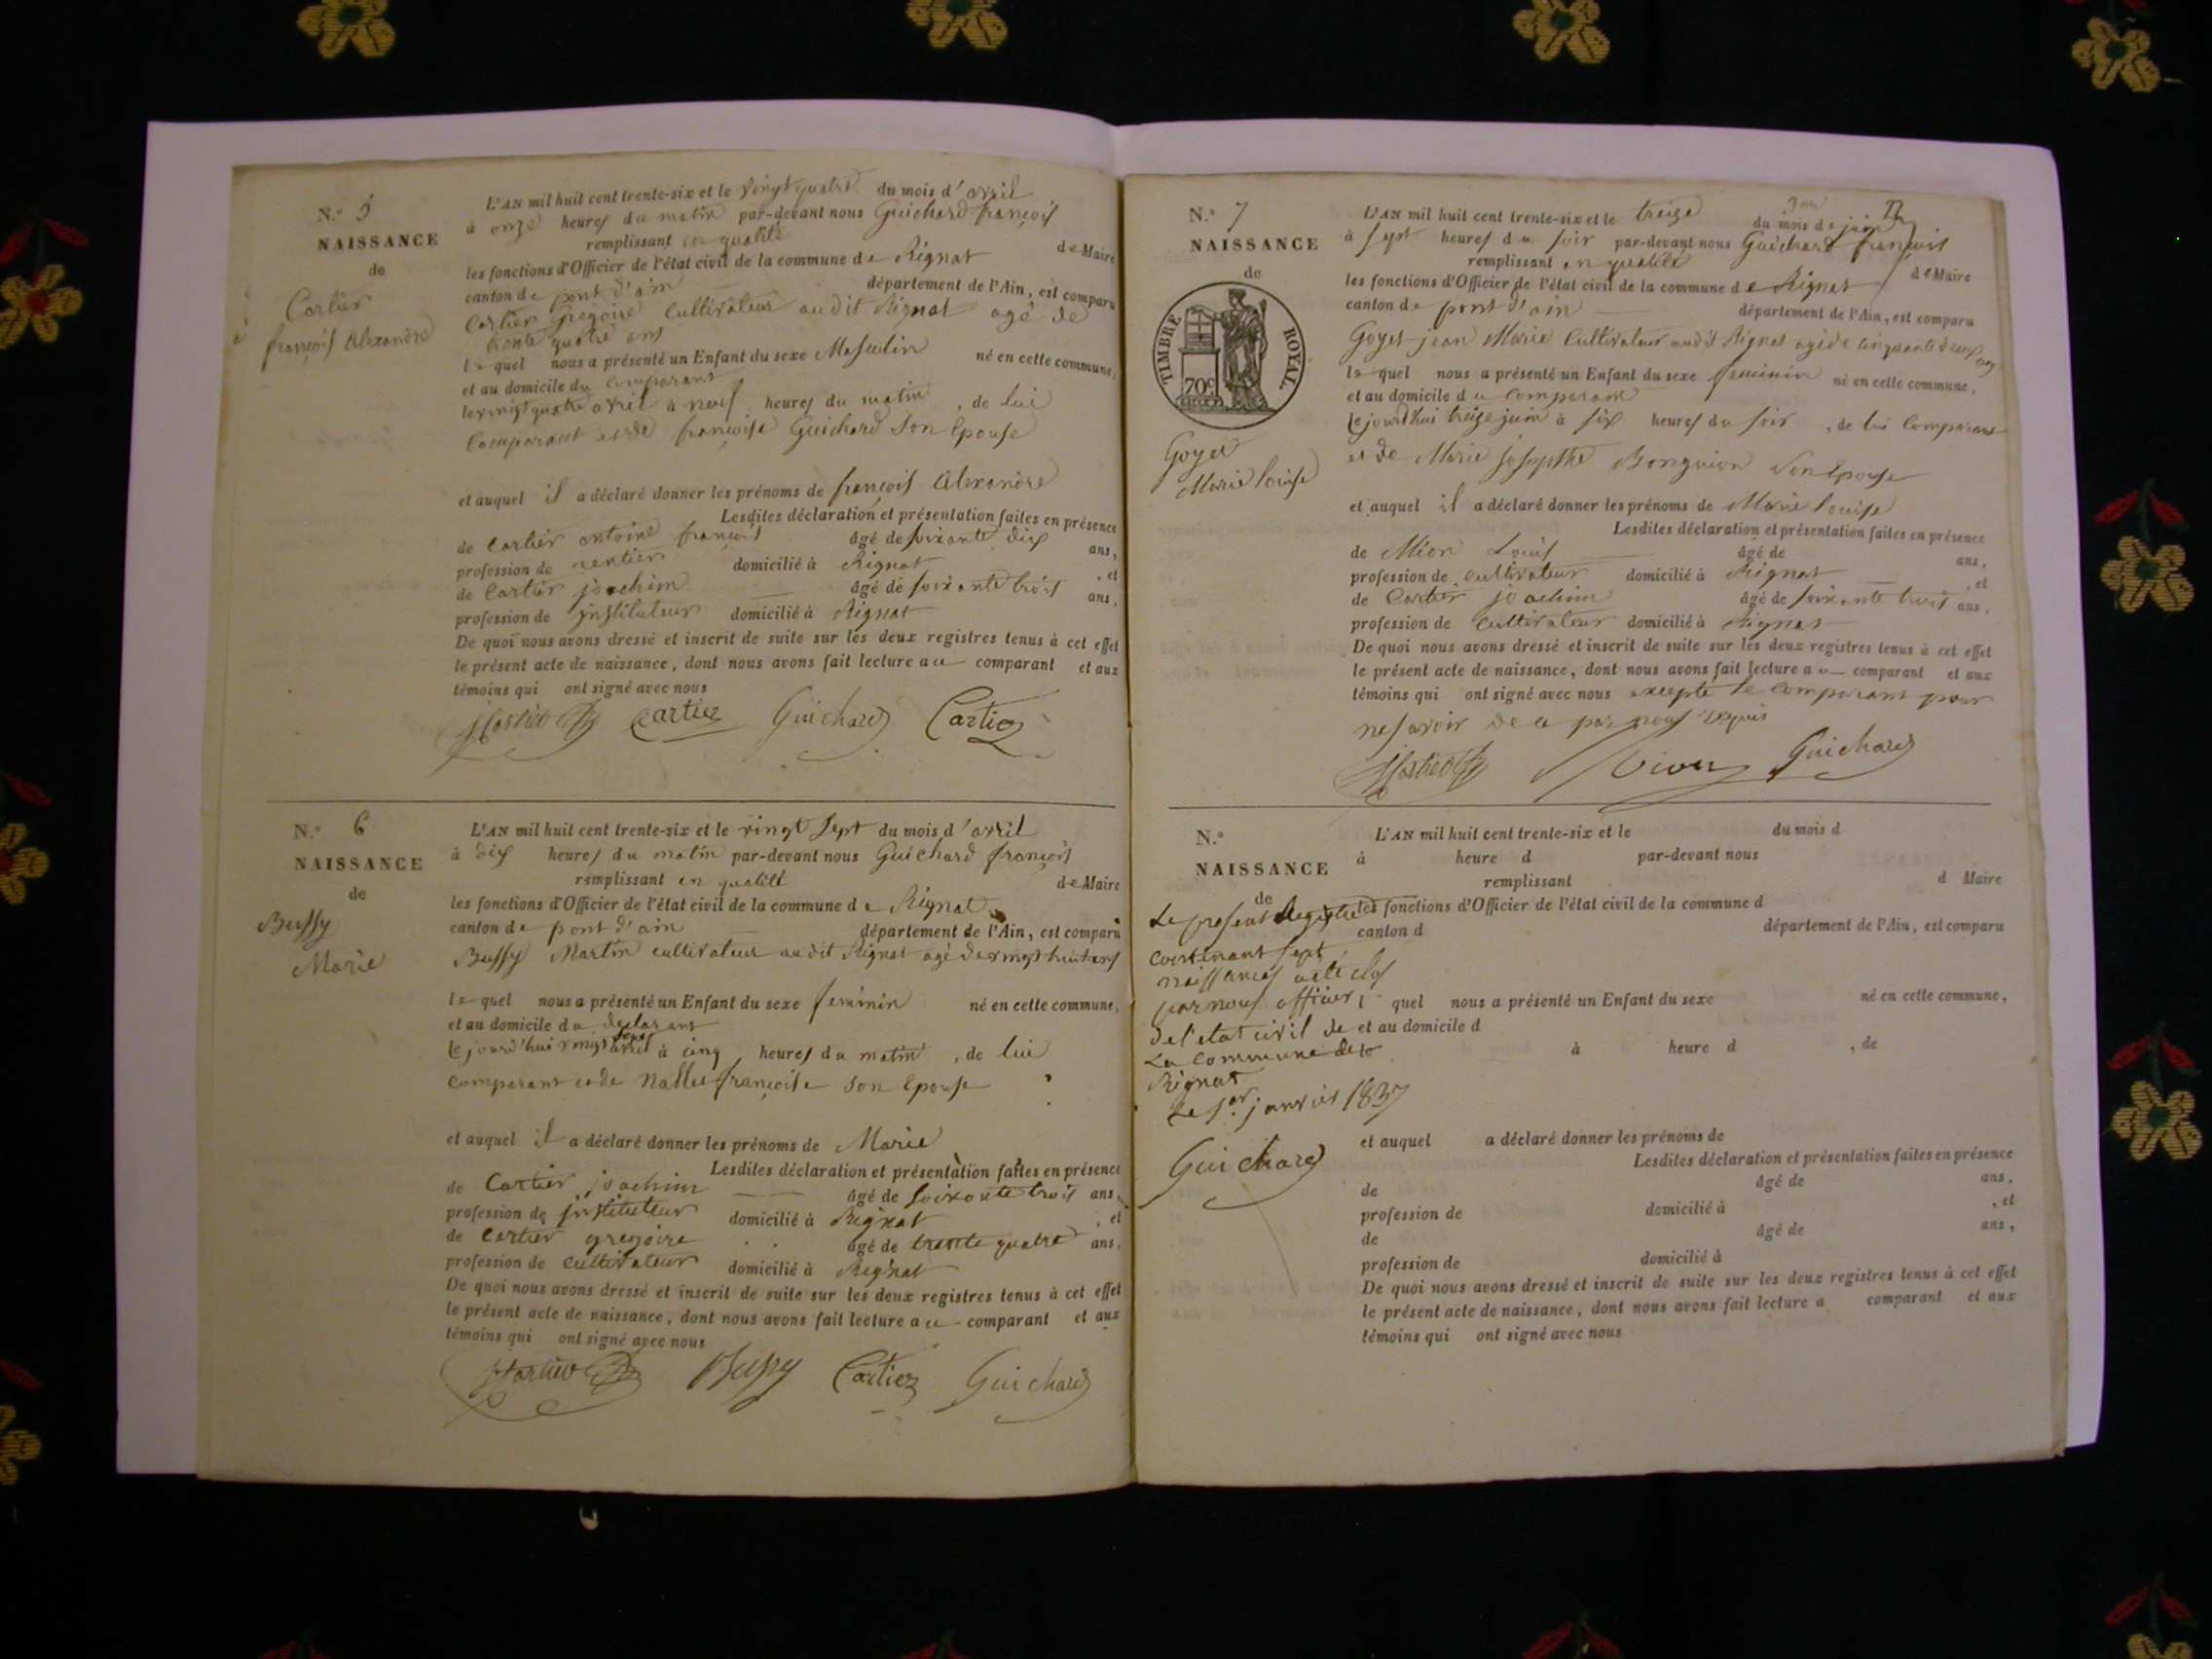 N.° 5
NAISSANCE
de
Cartier
françois Alexandre
L'AN mil huit cent trente-six et le vingt quatre du mois d'avril
à onze heures du matin par-devant nous Guichard françois
remplissant en qualité de Maire
les fonctions d'Officier de l'état civil de la commune de Rignat
canton de pont d'ain département de l'Ain, est comparu
Cartier Gregoire Cultivateur audit Rignat agé de
trente quatre ans
lequel nous a présenté un Enfant du sexe Masculin né en cette commune,
et au domicile du comparant
le vingt quatre avril à neuf heures du matin, de lui
Comparant et de françoise Guichard Son Epouse
et auquel il a déclaré donner les prénoms de françois Alexandre
Lesdites déclaration et présentation faites en présence
de Cartier antoine françois âgé de soixante dix ans,
profession de rentier domicilié à Rignat, et
de Cartier joachim âgé de soixante trois ans,
profession de instituteur domicilié à Rignat
De quoi nous avons dressé et inscrit de suite sur les deux registres tenus à cet effet
le présent acte de naissance, dont nous avons fait lecture au comparant et aux
témoins qui ont signé avec nous
Cartier Guichard Cartier
N.° 6
NAISSANCE
de
Bussy
Marie
L'AN mil huit cent trente-six et le vingt sept du mois d'avril
à dix heures du matin par-devant nous Guichard françois
remplissant en qualité de Maire
les fonctions d'Officier de l'état civil de la commune de Rignat
canton de pont d'ain département de l'Ain, est comparu
Bussy Martin cultivateur audit Rignat agé de vingt huit ans
lequel nous a présenté un Enfant du sexe feminin né en cette commune,
et au domicile du declarant
Cejourd'hui vingt sept avril à cinq heures du matin, de lui
comparant et de françoise son Epouse
et auquel il a déclaré donner les prénoms de Marie
Lesdites déclaration et présentation faites en présence
de Cartier joachim âgé de soixante trois ans,
profession de instituteur domicilié à Rignat, et
de Cartier gregoire âgé de trente quatre ans,
profession de cultivateur domicilié à Rignat
De quoi nous avons dressé et inscrit de suite sur les deux registres tenus à cet effet
le présent acte de naissance, dont nous avons fait lecture au comparant et aux
témoins qui ont signé avec nous
Bussy Cartier Guichard
N.° 7
NAISSANCE
de
TIMBRE ROYAL.
70c
Goyet
Marie louise
L'AN mil huit cent trente-six et le treize du mois de juin
à sept heures du soir par-devant nous Guichard françois
remplissant en qualité de Maire
les fonctions d'Officier de l'état civil de la commune de Rignat
canton de pont d'ain département de l'Ain, est comparu
Goyet jean Marie Cultivateur audit Rignat agé de cinquante deux ans
lequel nous a présenté un Enfant du sexe feminin né en cette commune,
et au domicile du comparant
Cejourd'hui treize juin à six heures du soir, de lui Comparant
et de Marie josepthe son Epouse
et auquel il a déclaré donner les prénoms de Marie louise
Lesdites déclaration et présentation faites en présence
de Louis âgé de ans,
profession de cultivateur domicilié à Rignat, et
de Cartier joachim âgé de soixante trois ans,
profession de Cultivateur domicilié à Rignat
De quoi nous avons dressé et inscrit de suite sur les deux registres tenus à cet effet
le présent acte de naissance, dont nous avons fait lecture au comparant et aux
témoins qui ont signé avec nous excepté le comparant pour
ne savoir de ce par nous requis
Guichard
N.°
NAISSANCE
de
Le present Registre
contenant sept
naissances a été clos
par nous officier
de l'etat civil de
La Commune de
Rignat
Le 1er janvier 1837
Guichard
L'AN mil huit cent trente-six et le du mois d
à heure d par-devant nous
remplissant d Maire
les fonctions d'Officier de l'état civil de la commune d
canton d département de l'Ain, est comparu
l quel nous a présenté un Enfant du sexe né en cette commune,
et au domicile d
à heure d , de
et auquel a déclaré donner les prénoms de
Lesdites déclaration et présentation faites en présence
de âgé de ans,
profession de domicilié à , et
de âgé de ans,
profession de domicilié à
De quoi nous avons dressé et inscrit de suite sur les deux registres tenus à cet effet
le présent acte de naissance, dont nous avons fait lecture a comparant et aux
témoins qui ont signé avec nous